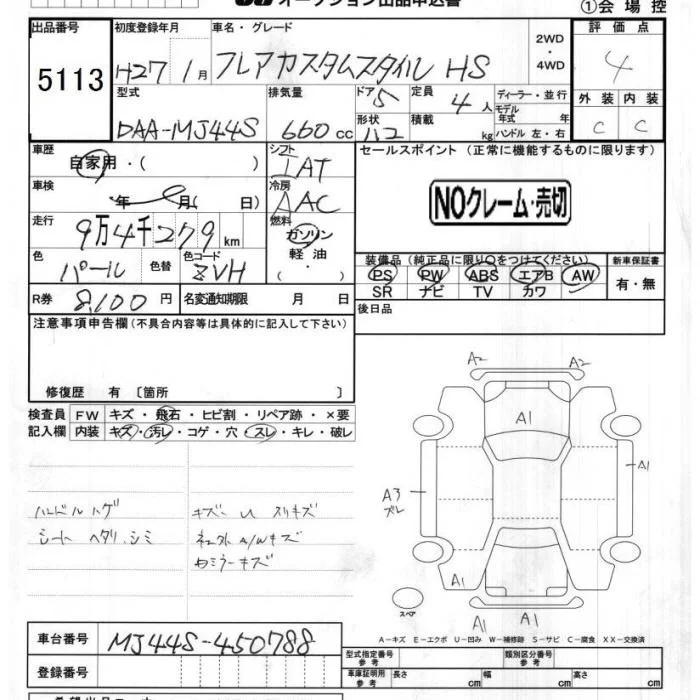 オークション出品申込書
①会場控
出品番号 初度登録年月 車名・グレード 評価点
5113 H27 1月 フレアカスタムスタイル HS 2WD・4WD 4
型式 排気量 ドア 5 定員 4人 ディーラー・並行 外装 内装
モデル年式 年
DAA-MJ44S 660cc 形状 ハコ 積載 kg ハンドル 左・右 C C
車歴 シフト セールスポイント (正常に機能するものに限ります)
自家用・( ) IAT
車検 冷房
年 月( 日) AAC NOクレーム・売切
走行 燃料
9万4千279km ガソリン
軽油
・( )
色 色替 色コード 装備品 (純正品に限り○をつけてください) 新車保証書
パール ZVH PS PW ABS エアB AW 有・無
SR ナビ TV カワ
R券 8,100円 名変通知期限 月 日 後日品
注意事項申告欄 (不具合内容等は具体的に記入して下さい)
修復歴 有 〔箇所 〕
検査員 FW キズ・飛石・ヒビ割・リペア跡・×要
記入欄 内装 キズ・汚レ・コゲ・穴・スレ・キレ・破レ
ハンドルハゲ キズ U スリキズ
シート ヘタリ.シミ A/Wキズ
ミラーキズ
A2 A2
A1
A3 ズレ
A1
A1
A1 A1
スペア
A-キズ E-エクボ U-凹み W-補修跡 S-サビ C-腐食 XX-交換済
車台番号 MJ44S-450788
型式指定番号 参考 類別区分番号 参考
登録番号 車庫証明用 参考 長さ cm 幅 cm 高さ cm